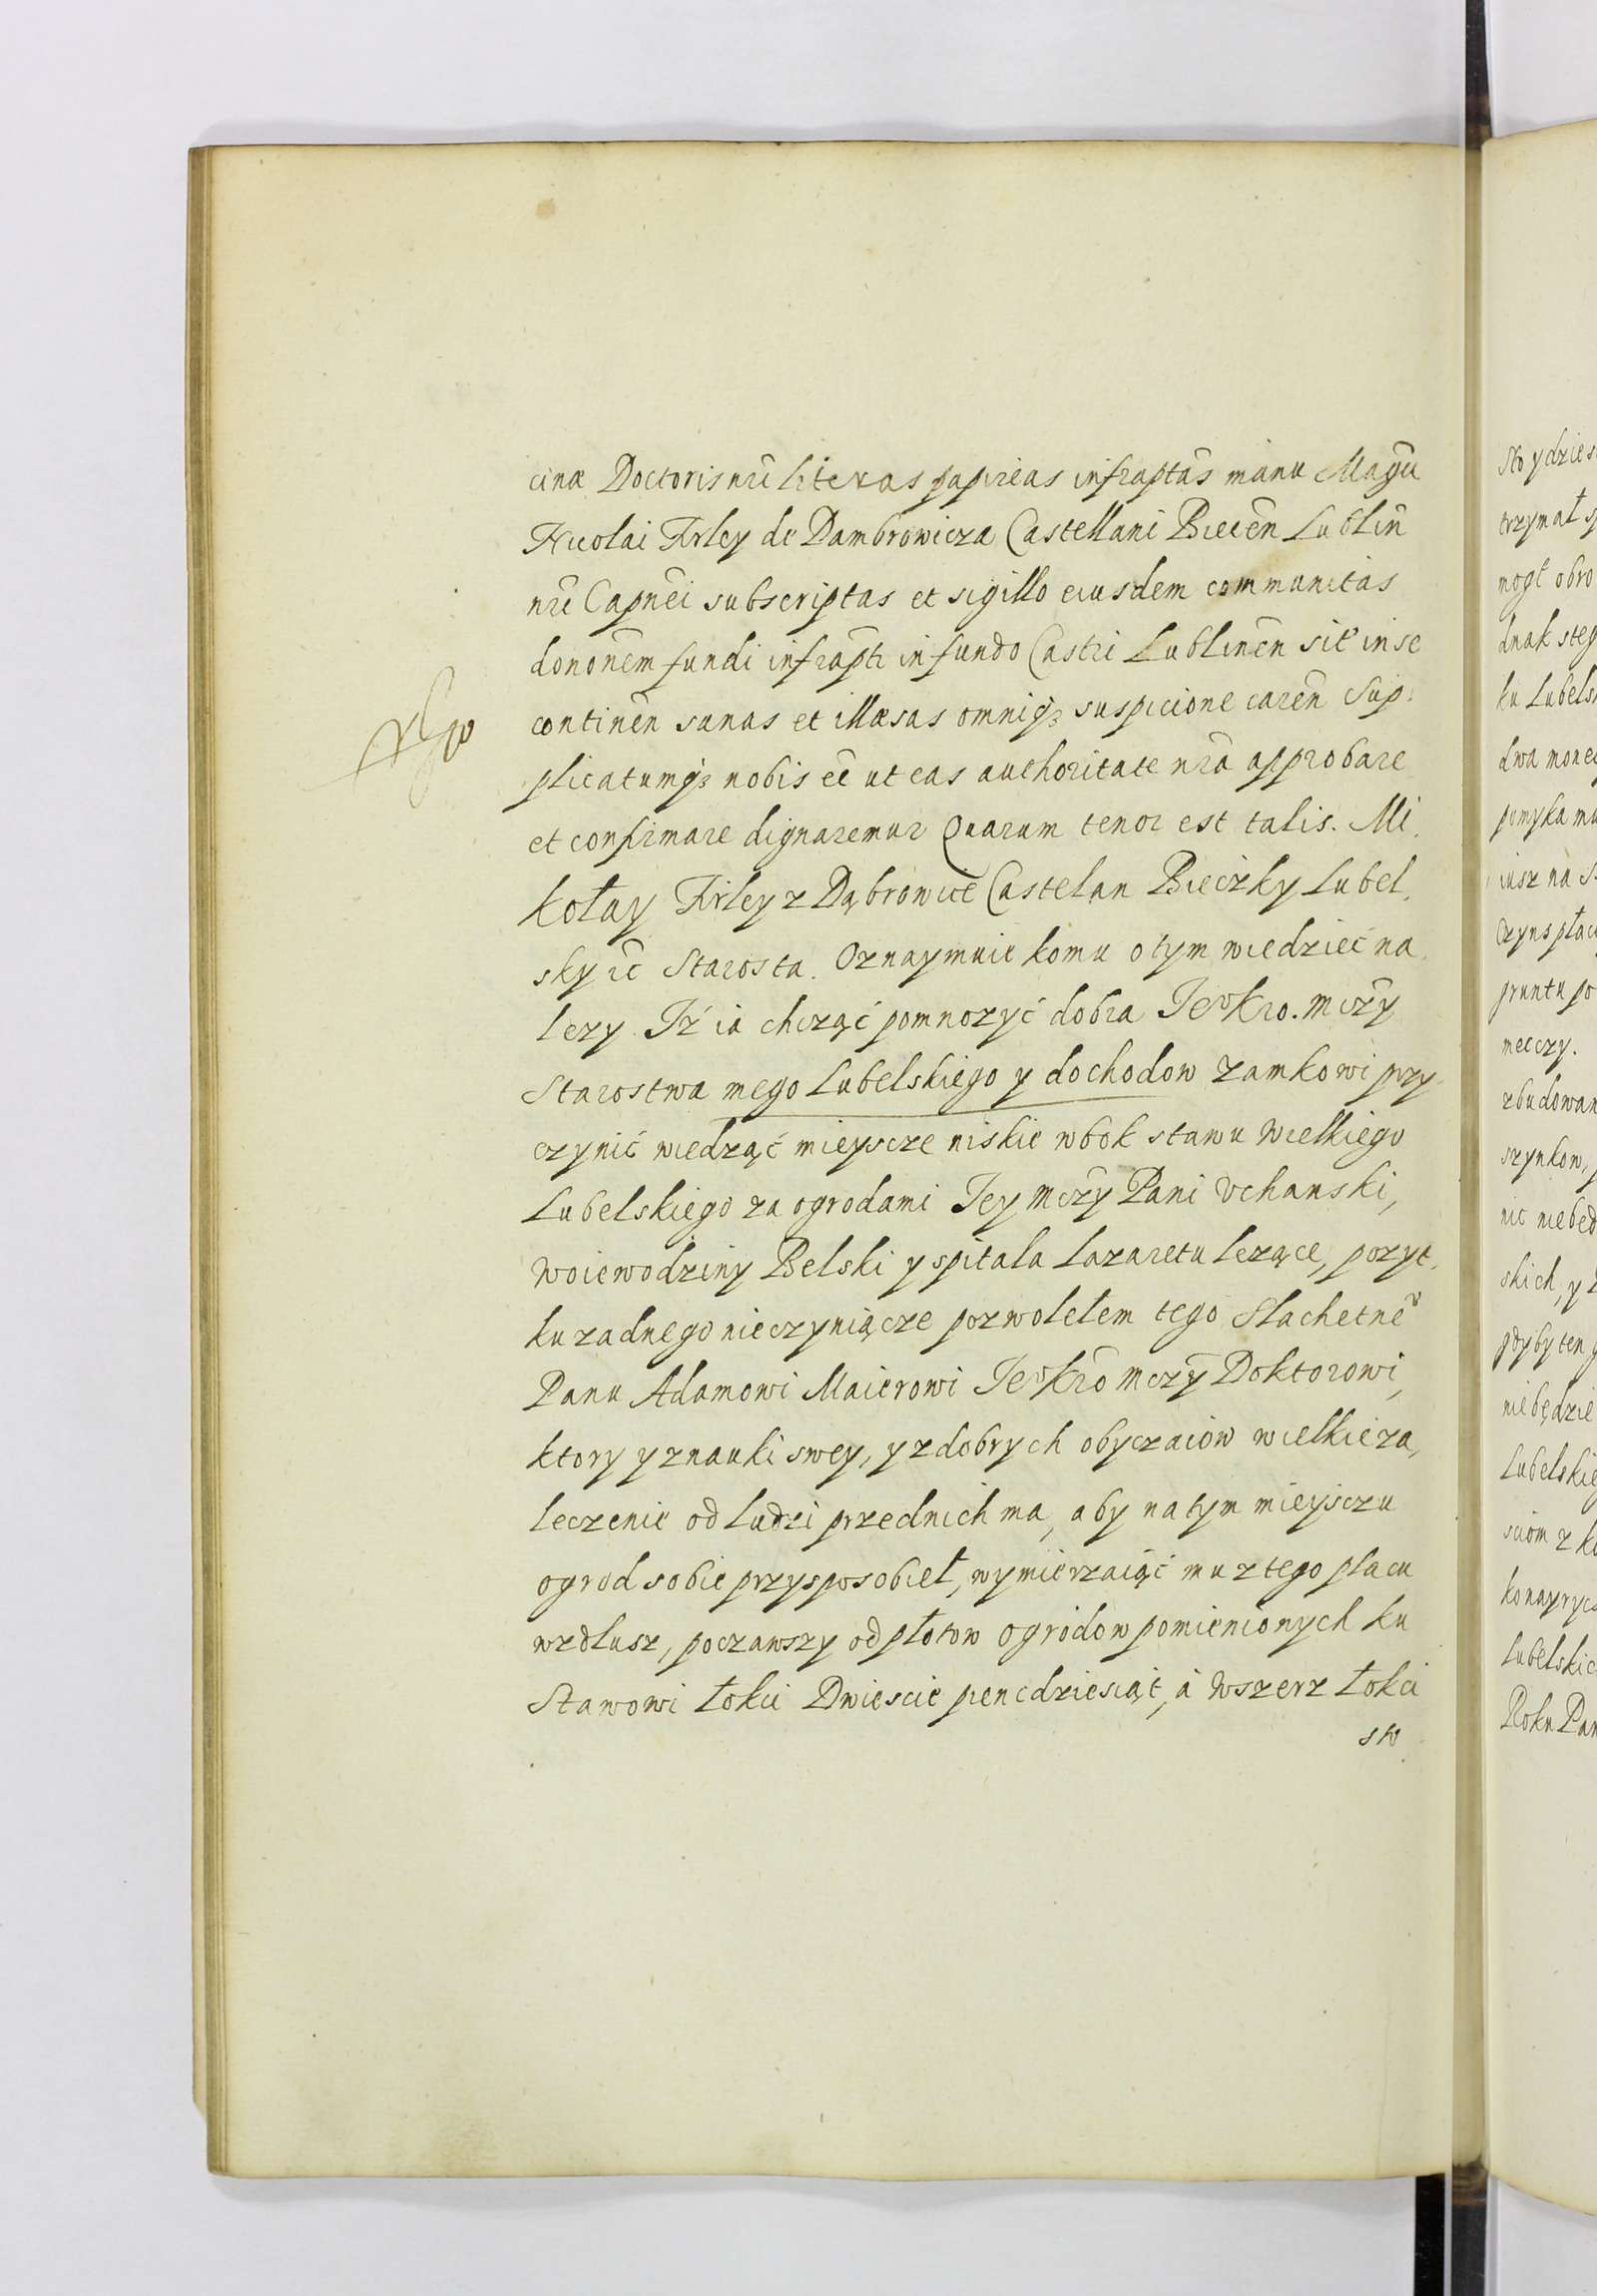 cinæ Doctoris nrī literas papireas infraptās manu Magcī
Nicolai Firley de Dambrowicza Castellani Biecēn Lublin̄
nrī Capnēi subscriptas et sigillo eiusdem communitas
donōnem fundi infrapti in fundo Castri Lublinēn sit̄ in se
continēn sanas et illæsas omniq̨ suspicione carēn Sup
plicatumq̨ nobis eē ut eas authoritate nrā approbare
et confirmare dignaremur Quarum tenor est talis. Mi
kołay Firley z Dąbrowice Castelan Bieczky Lubel
sky rē Starosta. Oznaymuie komu o tym wiedzieć na
lezy. Iż ia chcząć pomnozyć dobra Ieº Kro. Mczy
Starostwa mego Lubelskiego y dochodow zamkowi przy
czynić wiedząć mieyscze niskie wbok stawu wielkiego
Lubelskiego za ogrodami Iey Mczy Pani Uchanski,
Woiewodziny Belski y spitala Lazaretu lezące, pozyt
ku zadnego nie czyniącze pozwolełem tego Slachetneº
Panu Adamowi Maierowi Ieº Kro Mczy Doktorowi,
ktory y z nauki swey, y z dobrych obyczaiow wielkie za
leczenie od ludzi przednich ma, aby na tym mieysczu
ogrod sobie przysposobieł, wymierzaiąć mu z tego placu
wzdłusz, poczawszy od płotow ogrodow pomienionych ku
Stawowi łokci Dwiescie pencdziesiąt, á wszerz łokci
sto
Sto ydzies
trzymał s
mogł obro
dnak steg
ku Lubels
dwa mone
pomyka ma
iusz na S
Czyns płac
gruntu po
meczy.
zbudowan
szynkow,
nic niebęd
skich, y
gdyby ten
niebędzie
Lubelskie
sciom z k
konayryc
Lubelskie
Roku Pan